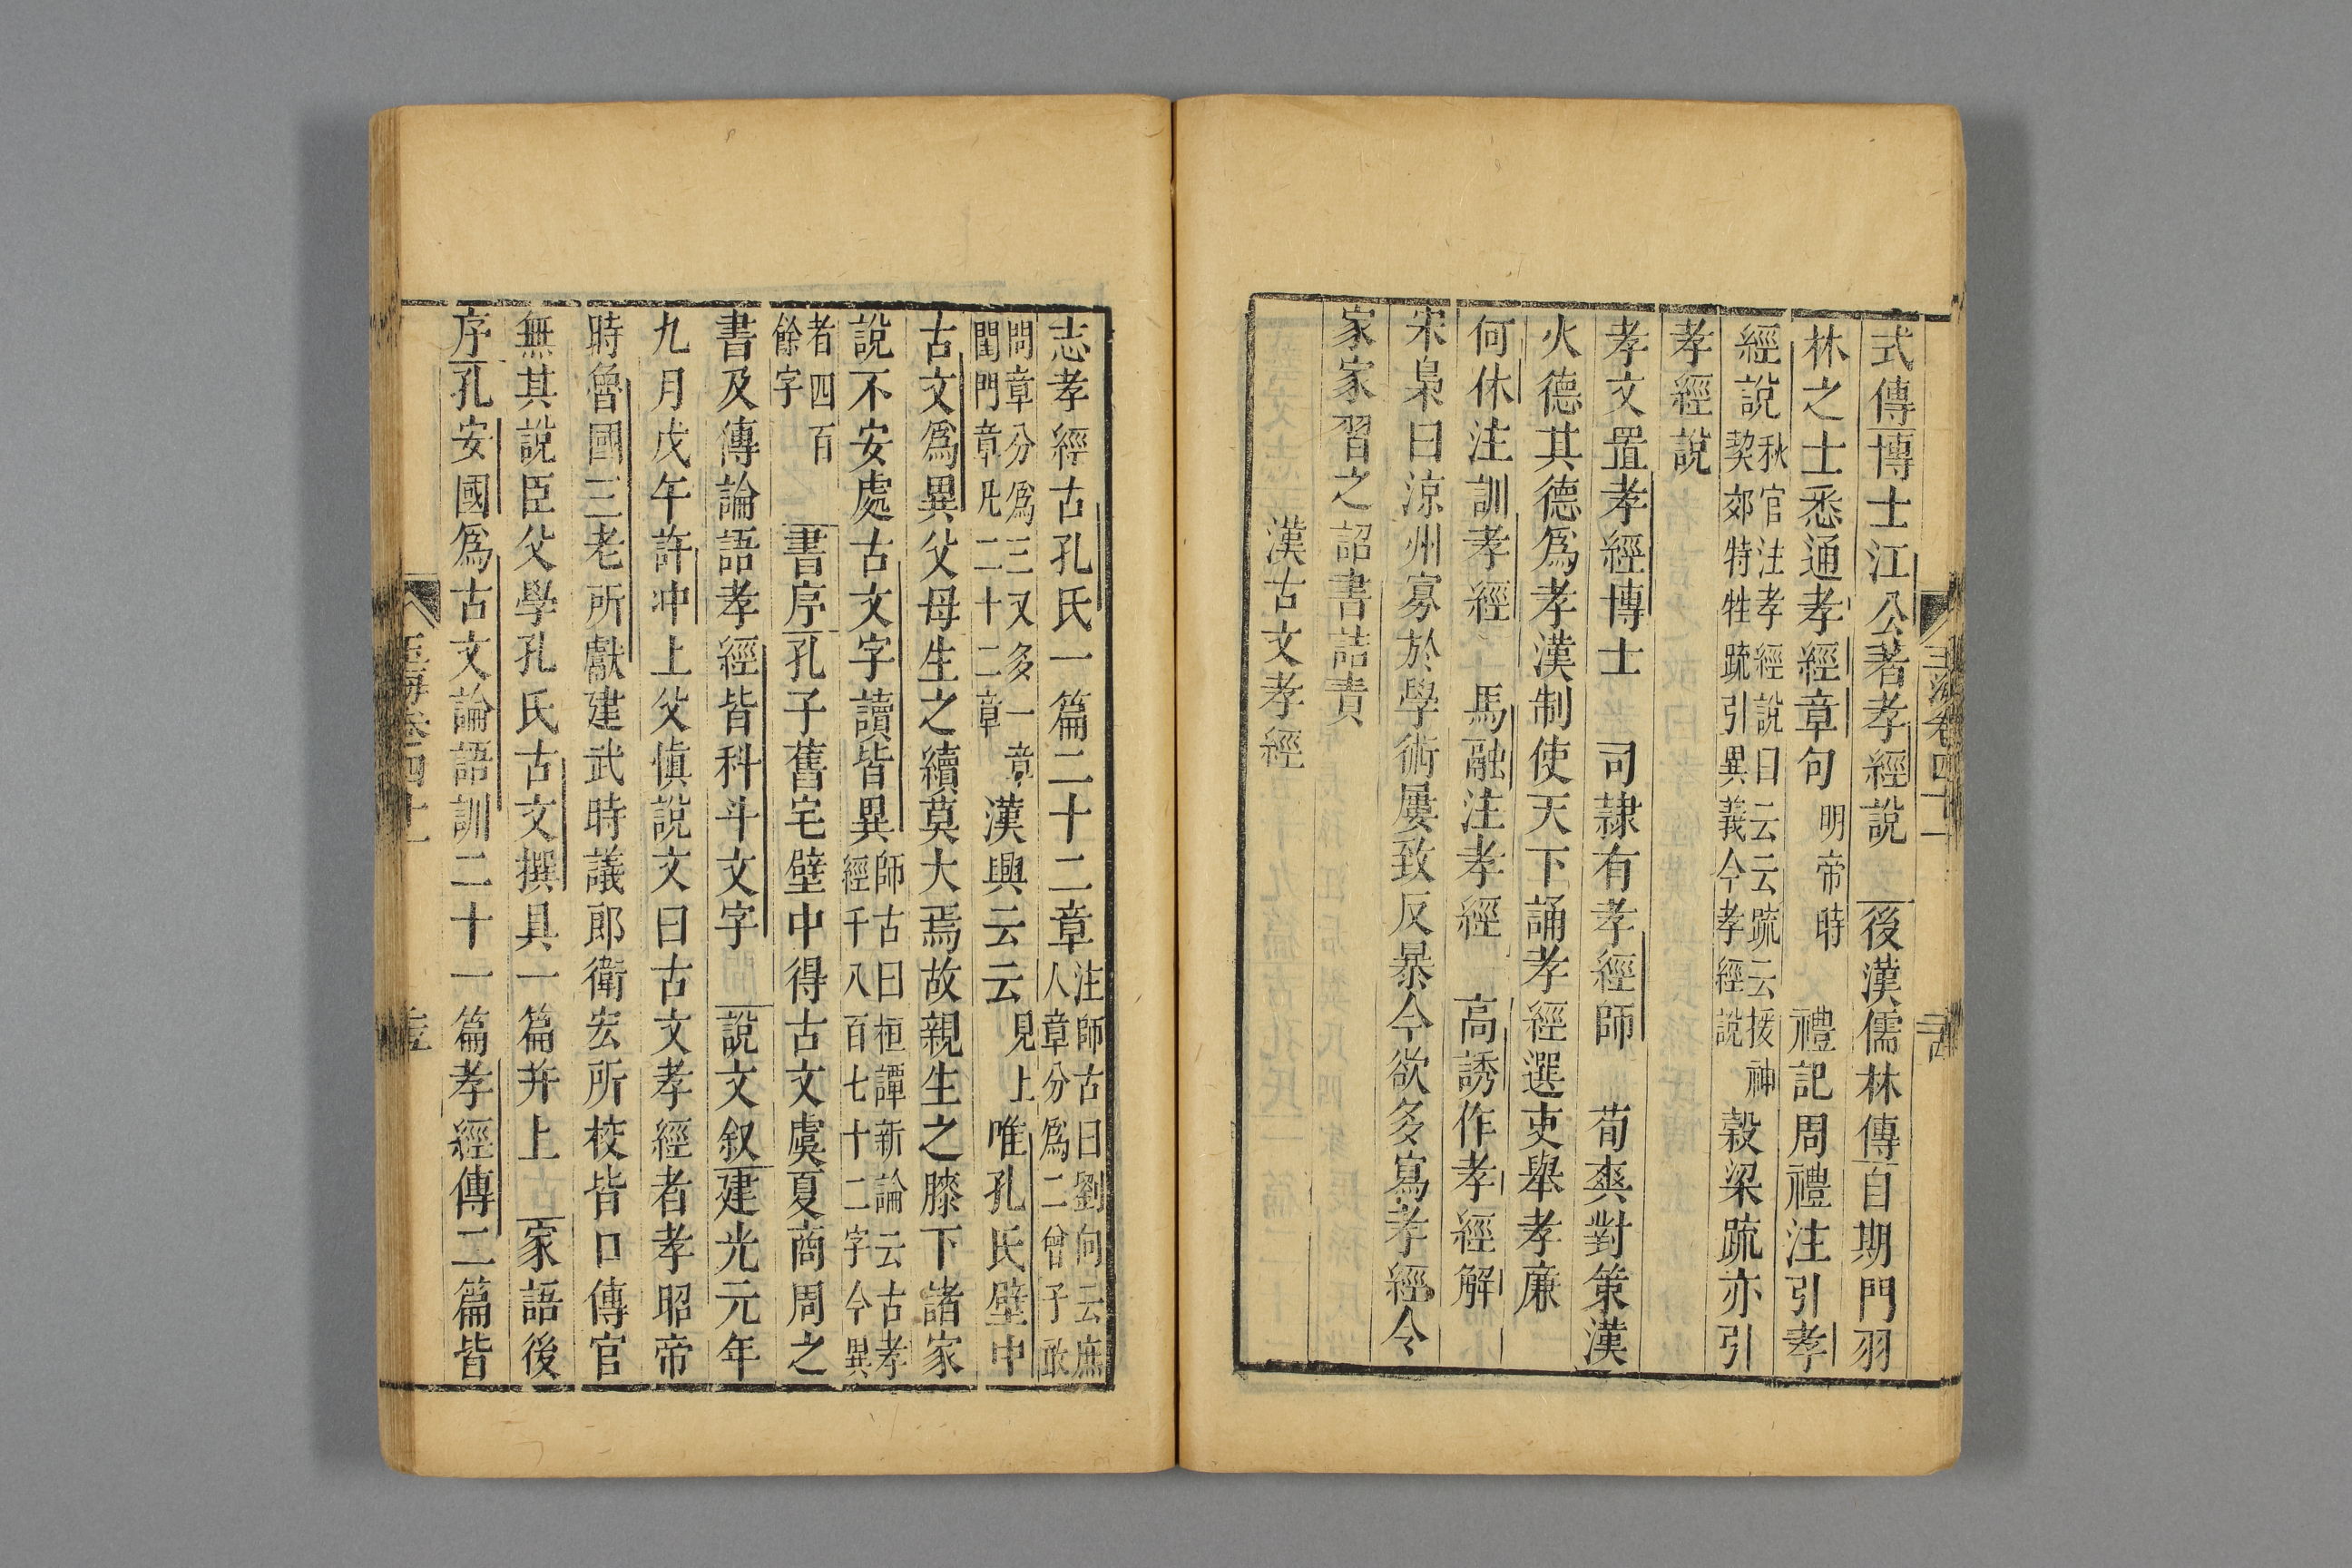 式傳博士江公著孝經說　後漢儒林傳自期門羽
林之士悉通孝經章句明帝時禮記周禮注引孝
經說秋官注孝經說曰云云疏云援神
契郊特牲疏引異義今孝經說
穀梁疏亦引
孝經說
孝文置孝經博士　司隷有孝經師　荀爽對策漢
火德其德爲孝漢制使天下誦孝經選吏舉孝廉
何休注訓孝經　馬融注孝經　高誘作孝經解
宋梟曰涼州寡於學術屢致反暴今欲多寫孝經令
家家習之詔書詰責
漢古文孝經
玉海卷四十一
志孝經古孔氏一篇二十二章注師古曰劉向云庶
人章分爲二曾子敢
問章分爲三又多一章
閨門章凡二十二章
漢興云云見上唯孔氏壁中
古文爲異父母生之續莫大焉故親生之膝下諸家
說不安處古文字讀皆異師古曰桓譚新論云古孝
經千八百七十二字今異
者四百
餘字
書序孔子舊宅壁中得古文虞夏商周之
書及傳論語孝經皆科斗文字　說文叙建光元年
九月戊午許冲上父愼說文曰古文孝經者孝昭帝
時魯國三老所獻建武時議郎衛宏所校皆口傳官
無其說臣父學孔氏古文撰具一篇并上　家語後
序孔安國爲古文論語訓二十一篇孝經傳二篇皆
玉海卷四十一